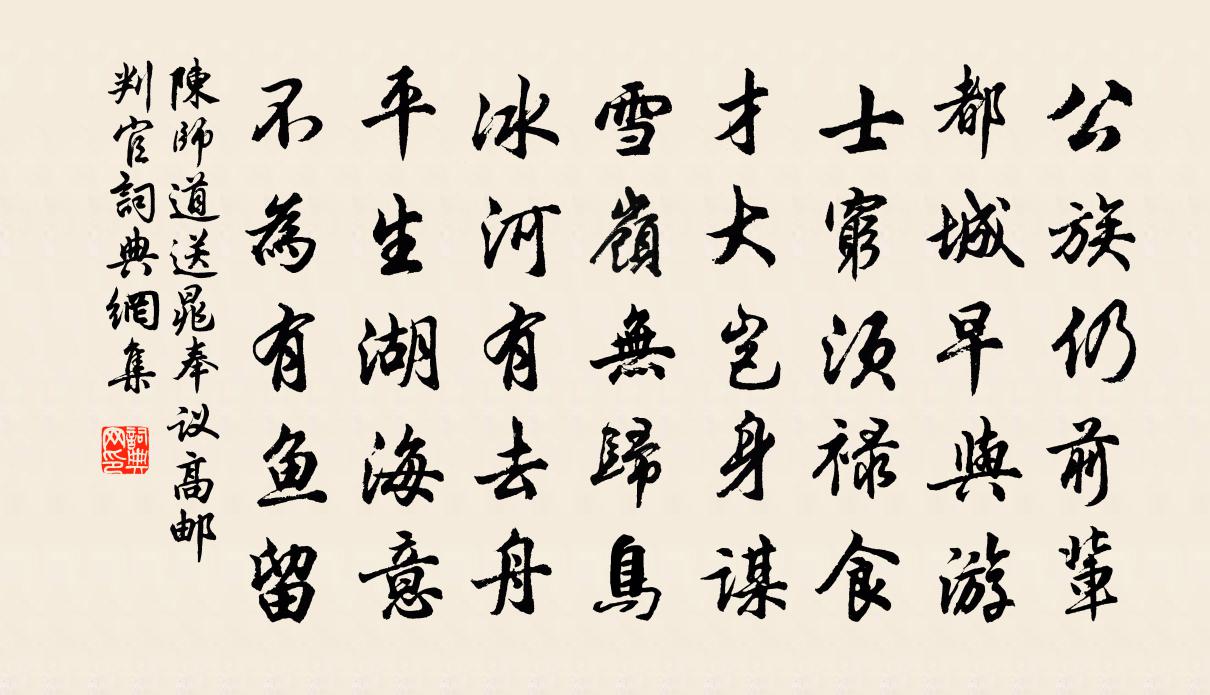 公族仍前輩
都城早與游
士窮須祿食
才大豈身謀
雪嶺無歸鳥
冰河有去舟
平生湖海意
不為有魚留
陳師道送晁奉议高邮
判官詞典網集
詞典网印